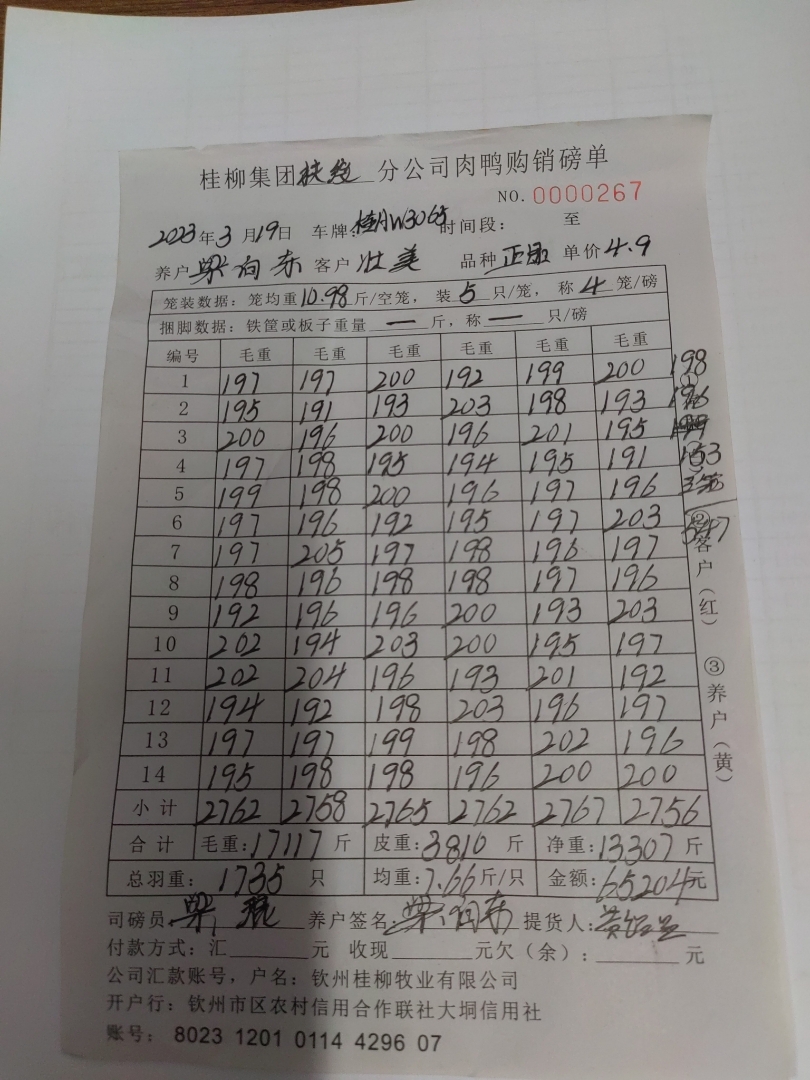 桂柳集团扶绥分公司肉鸭购销磅单
NO. 0000267
2023年3月19日 车牌:桂AW3065 时间段: 至
养户梁向东 客户壮美 品种 单价4.9
笼装数据:笼均重10.98斤/空笼,装5只/笼,称4笼/磅
捆脚数据:铁筐或板子重量一斤,称一只/磅
编号 毛重 毛重 毛重 毛重 毛重 毛重
1 197 197 200 192 199 200 198
2 195 191 193 203 198 193 196
3 200 196 200 196 201 195
4 197 198 195 194 195 191 153
5 199 198 200 196 197 196 三笼
6 197 196 192 195 197 203 547
7 197 205 197 198 196 197
8 198 196 198 198 197 196
9 192 196 196 200 193 203
10 202 194 203 200 195 197
11 202 204 196 193 201 192
12 194 192 198 203 196 197
13 197 197 199 198 202 196
14 195 198 198 196 200 200
小计 2762 2758 2765 2762 2767 2756
合计 毛重:17117斤 皮重:3810斤 净重:13307斤
总羽重:1735只 均重:7.66斤/只 金额:65204元
②客户(红) ③养户(黄)
司磅员:梁 养户签名:梁向东 提货人:黄
付款方式:汇 元 收现 元欠(余): 元
公司汇款账号,户名:钦州桂柳牧业有限公司
开户行:钦州市区农村信用合作联社大垌信用社
账号: 8023 1201 0114 4296 07